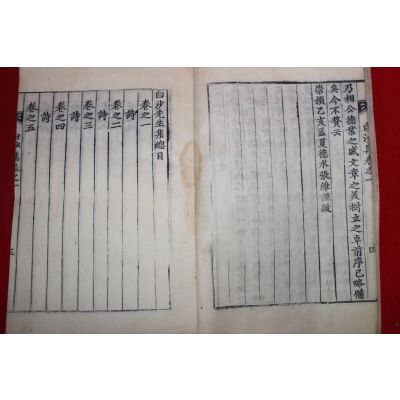 白沙集卷之一
四
乃相公德業之盛文章之美樹立之卓前序已略備
矣今不贅云
崇禎乙亥孟夏德水張維謹
白沙先生集總目
卷之一
詩
卷之二
詩
卷之三
詩
卷之四
詩
卷之五
白沙集卷之一
五